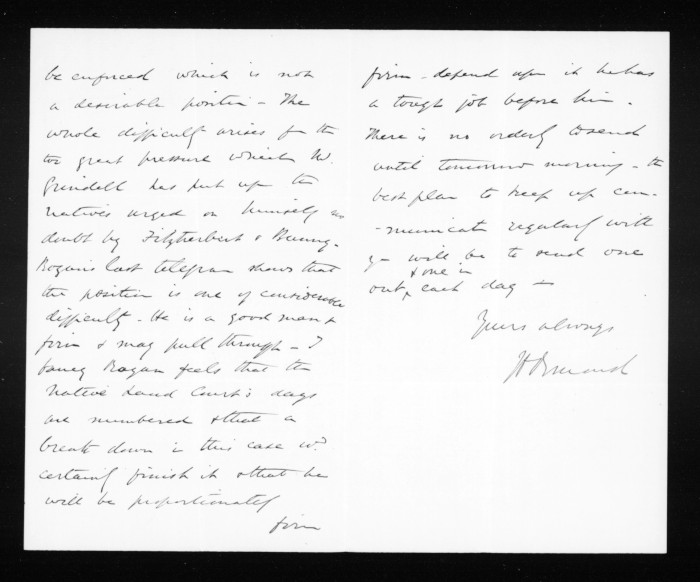 be enforced which is not
a desirable position - The
whole difficulty arises fm the
too great pressure which Mr.
Grindell has put upon the
natives urged on himself no
doubt by Fitzherbert & Bunny -
Rogan's last telegram shows that
the position is one of considerable
difficulty - He is a good man &
firm & may pull through - I
fancy Rogan feels that the
Native Land Court's days
are numbered & that a
break down in this case wd
certainly finish it & that he
will be proportionately
firm
firm - depend upon it he has
a tough job before him -
There is no orderly to send
until tomorrow morning - the
best plan to keep up com-
-munication regularly with
you will be to send one
out & one in each day -
Yours always
JD Ormond